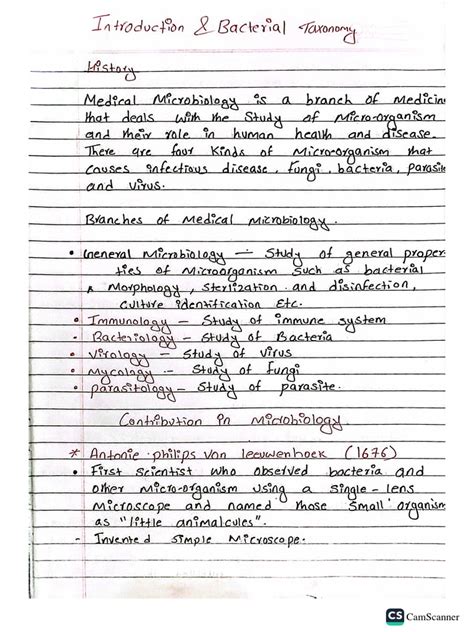 Introduction & Bacterial Taxonomy
History
Medical Microbiology is a branch of Medicin
that deals with the Study of Micro-organism
and their role in human health and disease.
There are four Kinds of Micro-organism that
causes infectious disease, fungi, bacteria, parasite
and virus.
Branches of Medical Microbiology.
• General Microbiology — Study of general proper-
ties of Microorganism such as bacterial
Morphology, sterlization and disinfection,
culture identification Etc.
• Immunology – Study of immune system
• Bacteriology – Study of Bacteria
• Virology – Study of virus
• Mycology – Study of fungi
• Parasitology – Study of parasite.
Contribution in Microbiology
* Antonie philips von leeuwenhoek (1676)
• First scientist who observed bacteria and
other micro-organism using a single-lens
Microscope and named those small organism
as "little animalcules".
- Invented simple Microscope.
CS CamScanner